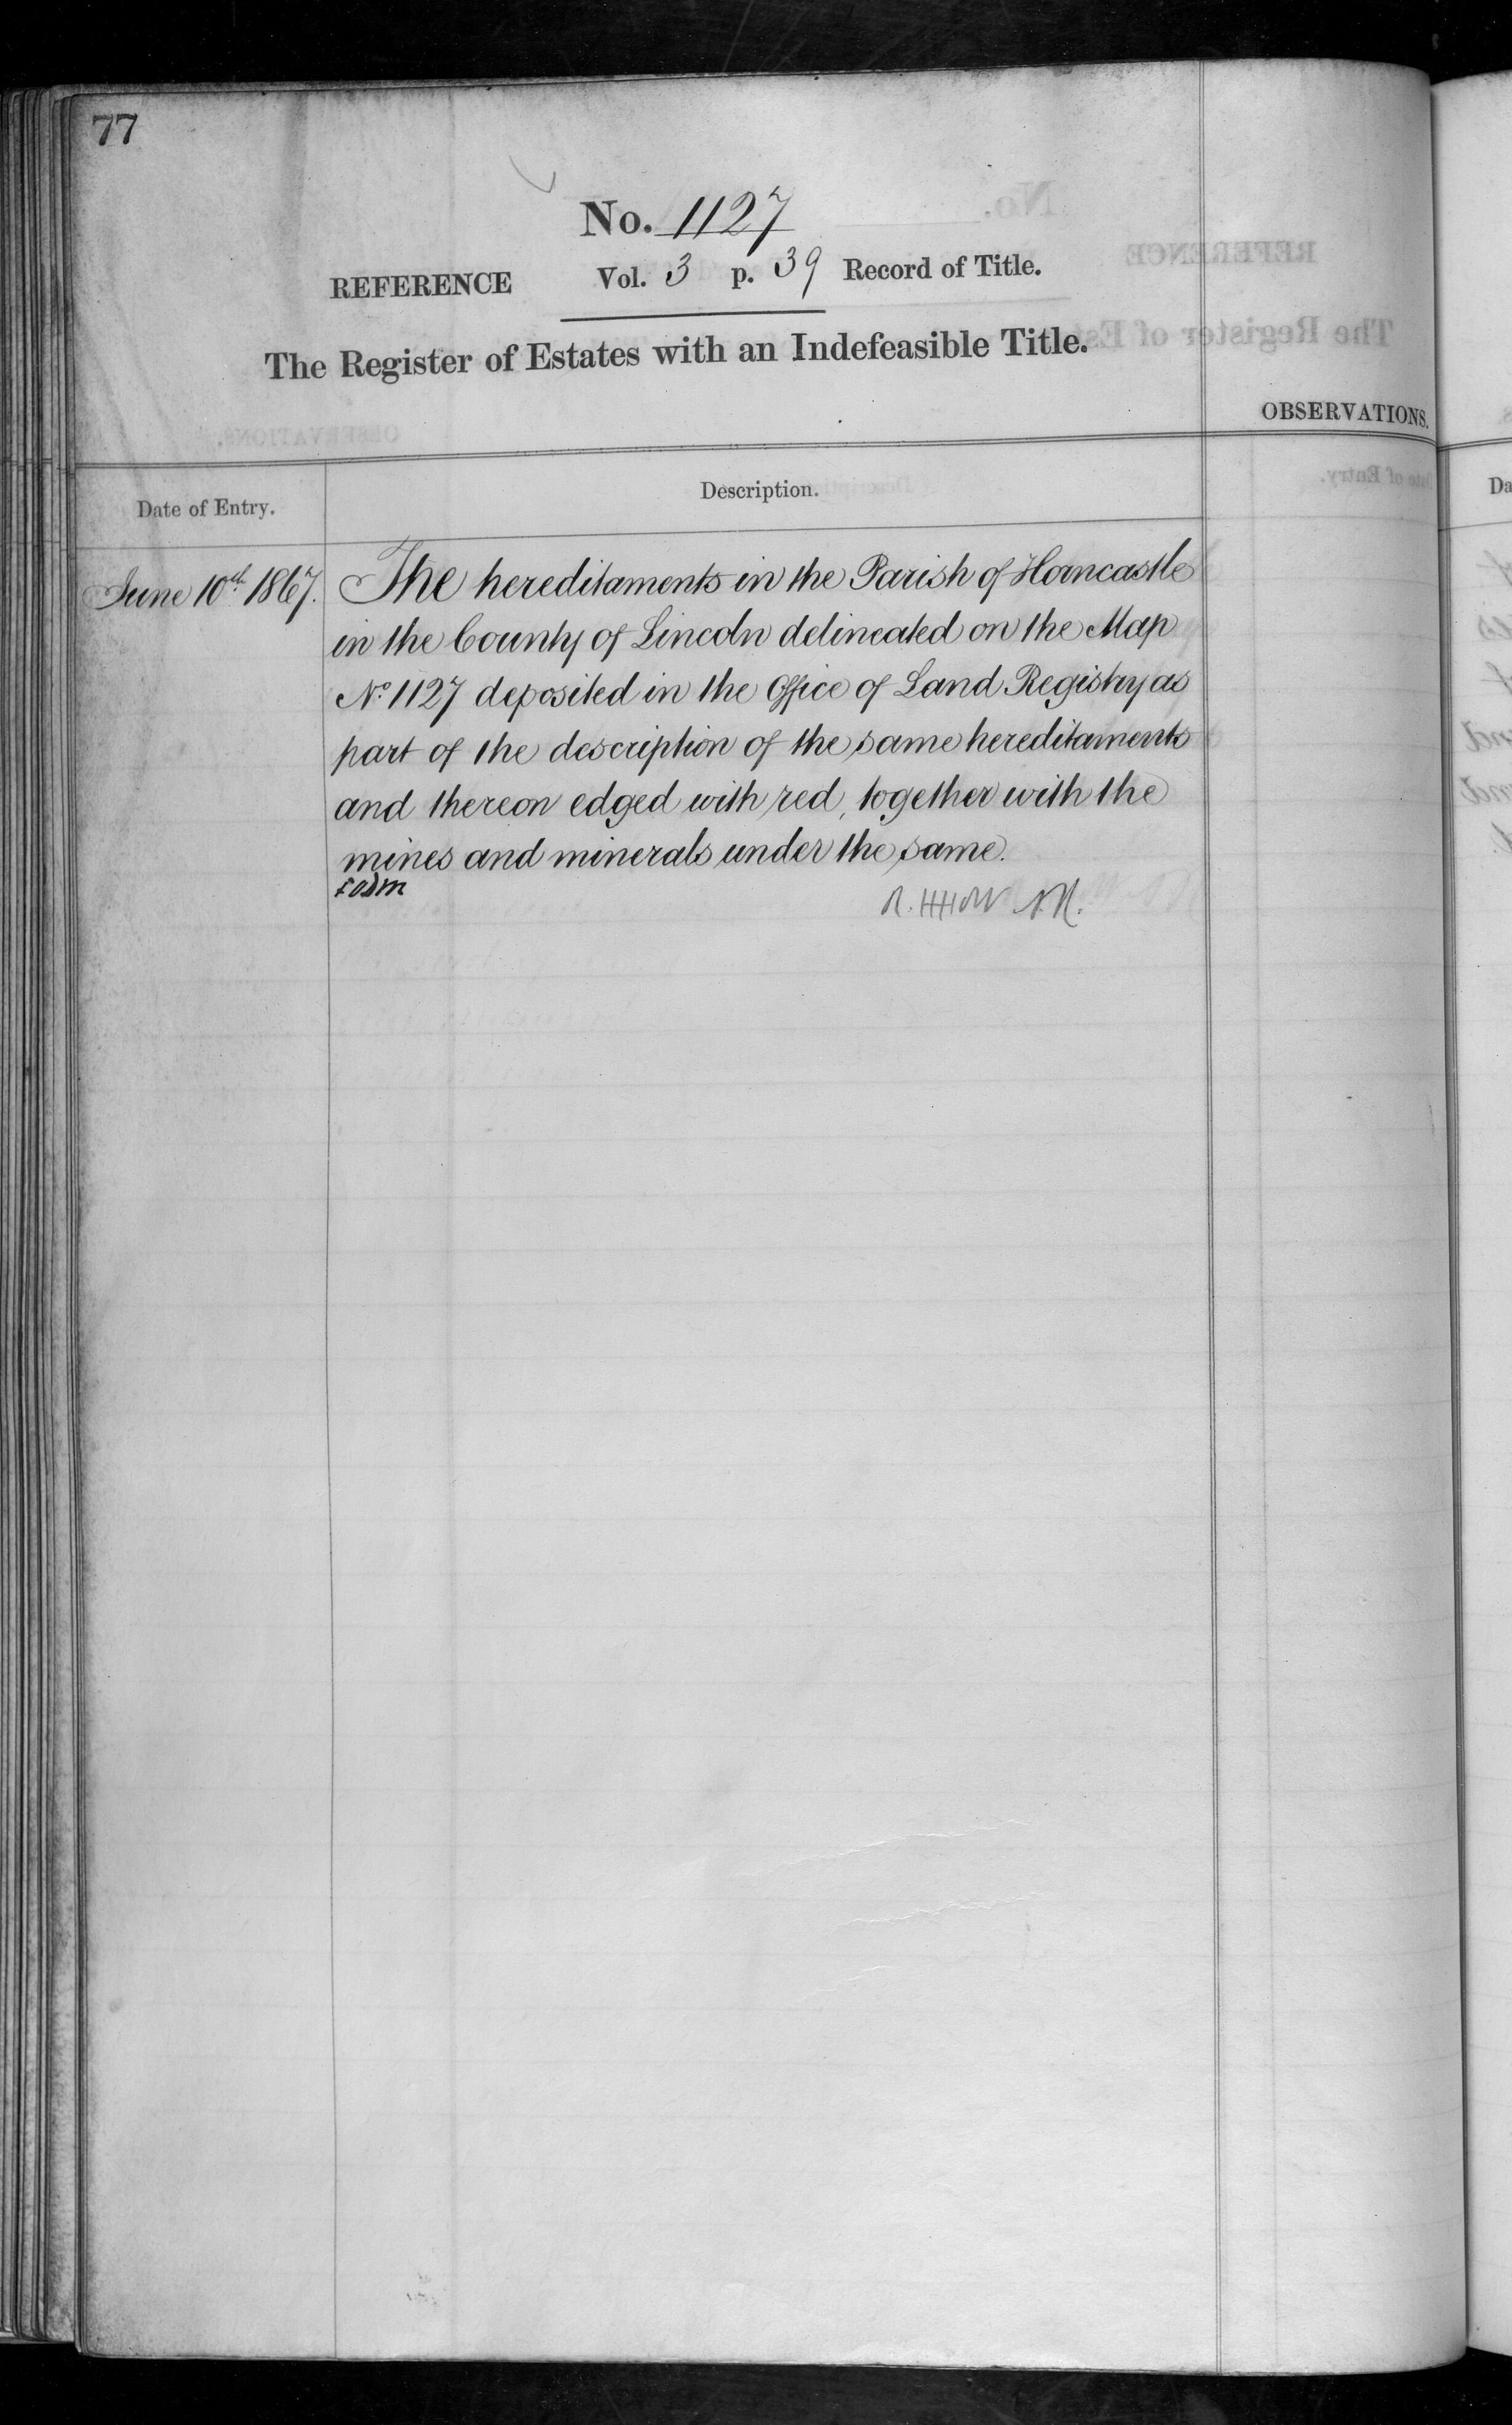 77
No. 1127
REFERENCE Vol. 3 p. 39 Record of Title.
The Register of Estates with an Indefeasible Title.
OBSERVATIONS.
Date of Entry.
Description.
June 10th 1867.
The hereditaments in the Parish of Horncastle
in the County of Lincoln delineated on the Map
No. 1127 deposited in the Office of Land Registry as
part of the description of the same hereditaments
and thereon edged with red, together with the
mines and minerals under the same.
Da